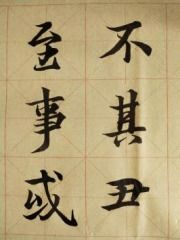 不其丑
至事或